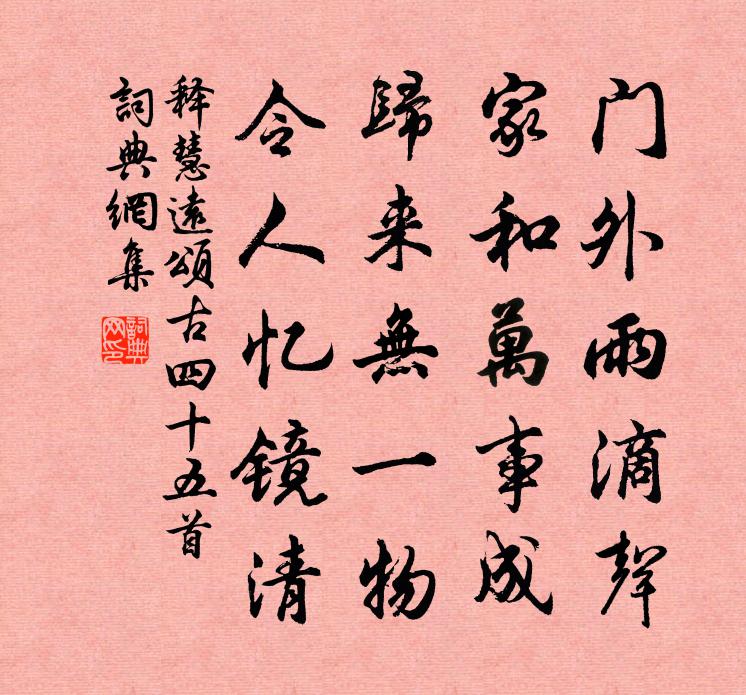 门外雨滴聲
家和萬事成
歸来無一物
令人忆镜清
释慧遠頌古四十五首
詞典網集
詞典网印